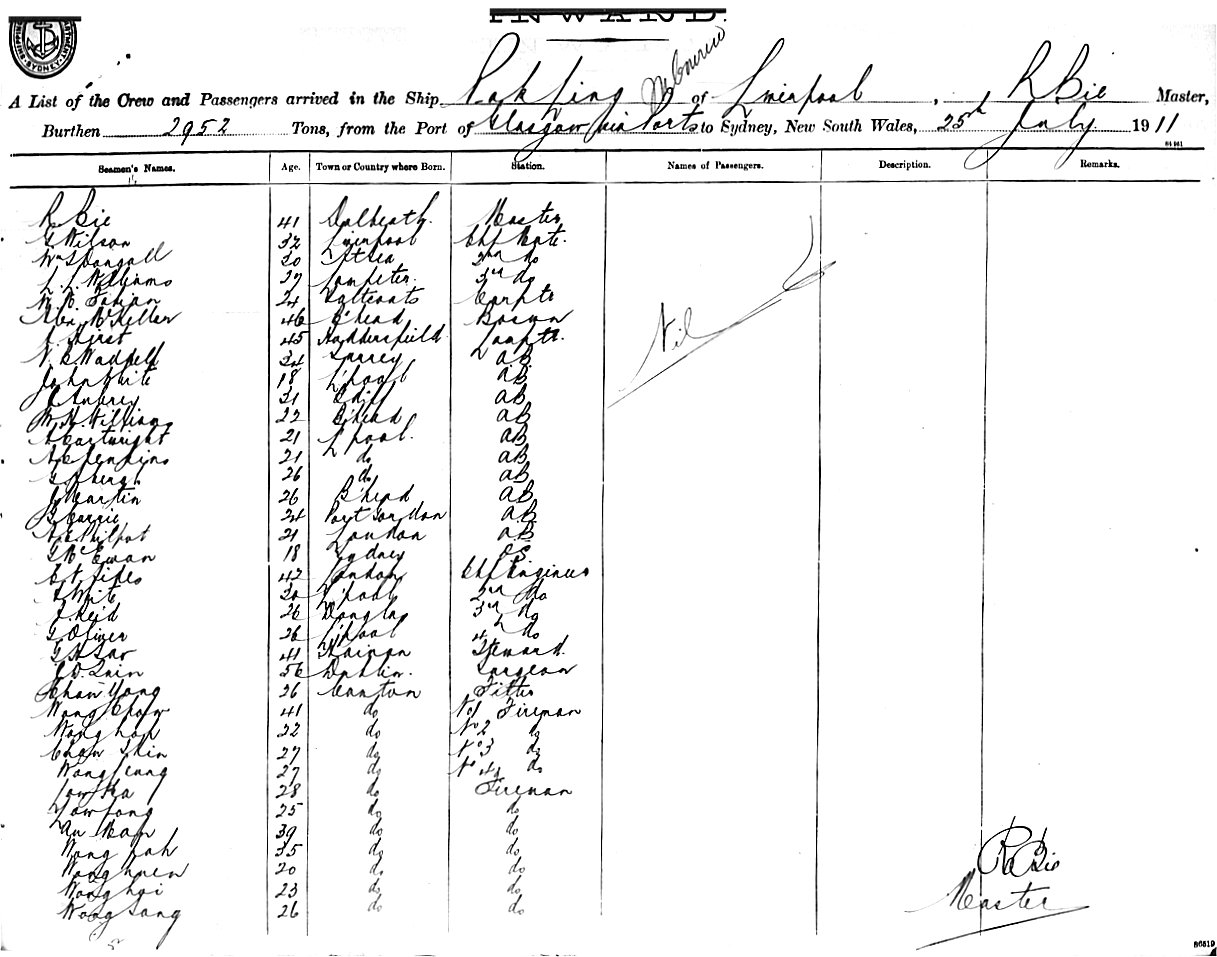 INWARD.
A List of the Crew and Passengers arrived in the Ship Pak Ling of Liverpool, R Bie Master,
Burthen 2952 Tons, from the Port of Glasgow via Ports to Sydney, New South Wales, 25th July 1911
84461
Seamen's Names. Age. Town or Country where Born. Station. Names of Passengers. Description. Remarks.
R Bie 41 Dalbeath. Master
G Wilson 32 Liverpool Chf Mate.
Wm S Dougall 30 2nd do
L. L. Williams 27 Lampeter. 3rd do
24 Saltcoats Carptr
Alex McKellar 46 B'head Bosun
Hirst 45 Huddersfield Lamptr.
Waddell 34 Surrey AB
John White 18 L'pool AB
31 AB
W. H. Williams 22 B'head AB
A Cartwright 21 L'pool. AB
A E Jenkins 21 do AB
26 do AB
J Martin 26 B'head AB
24 Port Gordon AB
Philpot 21 London AB
G McEwan 18 Sydney OS
42 London Chf Engineer
30 L'pool 2nd do
J. Reid 26 Douglas 3rd do
G Oliver 26 L'pool 4th do
41 Hainan Steward.
56 Dublin. Surgeon
Chan Yong 26 Canton Fitter
Wong Chow 41 do No 1 Fireman
Wong hop 22 do No 2 do
Chan Shin 27 do No 3 do
Wong Leung 27 do No 4 do
28 do Fireman
25 do do
39 do do
Wong 35 do do
Wong 20 do do
Wong hoi 23 do do
Wong Sang 26 do do
Nil
R Bie
Master
86519